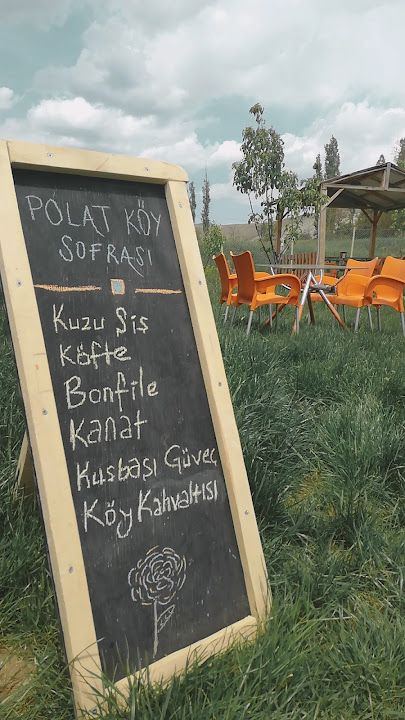 POLAT KÖY
SOFRASI
Kuzu Şiş
Köfte
Bonfile
Kanat
Kusbaşı Güveç
Köy Kahvaltısı